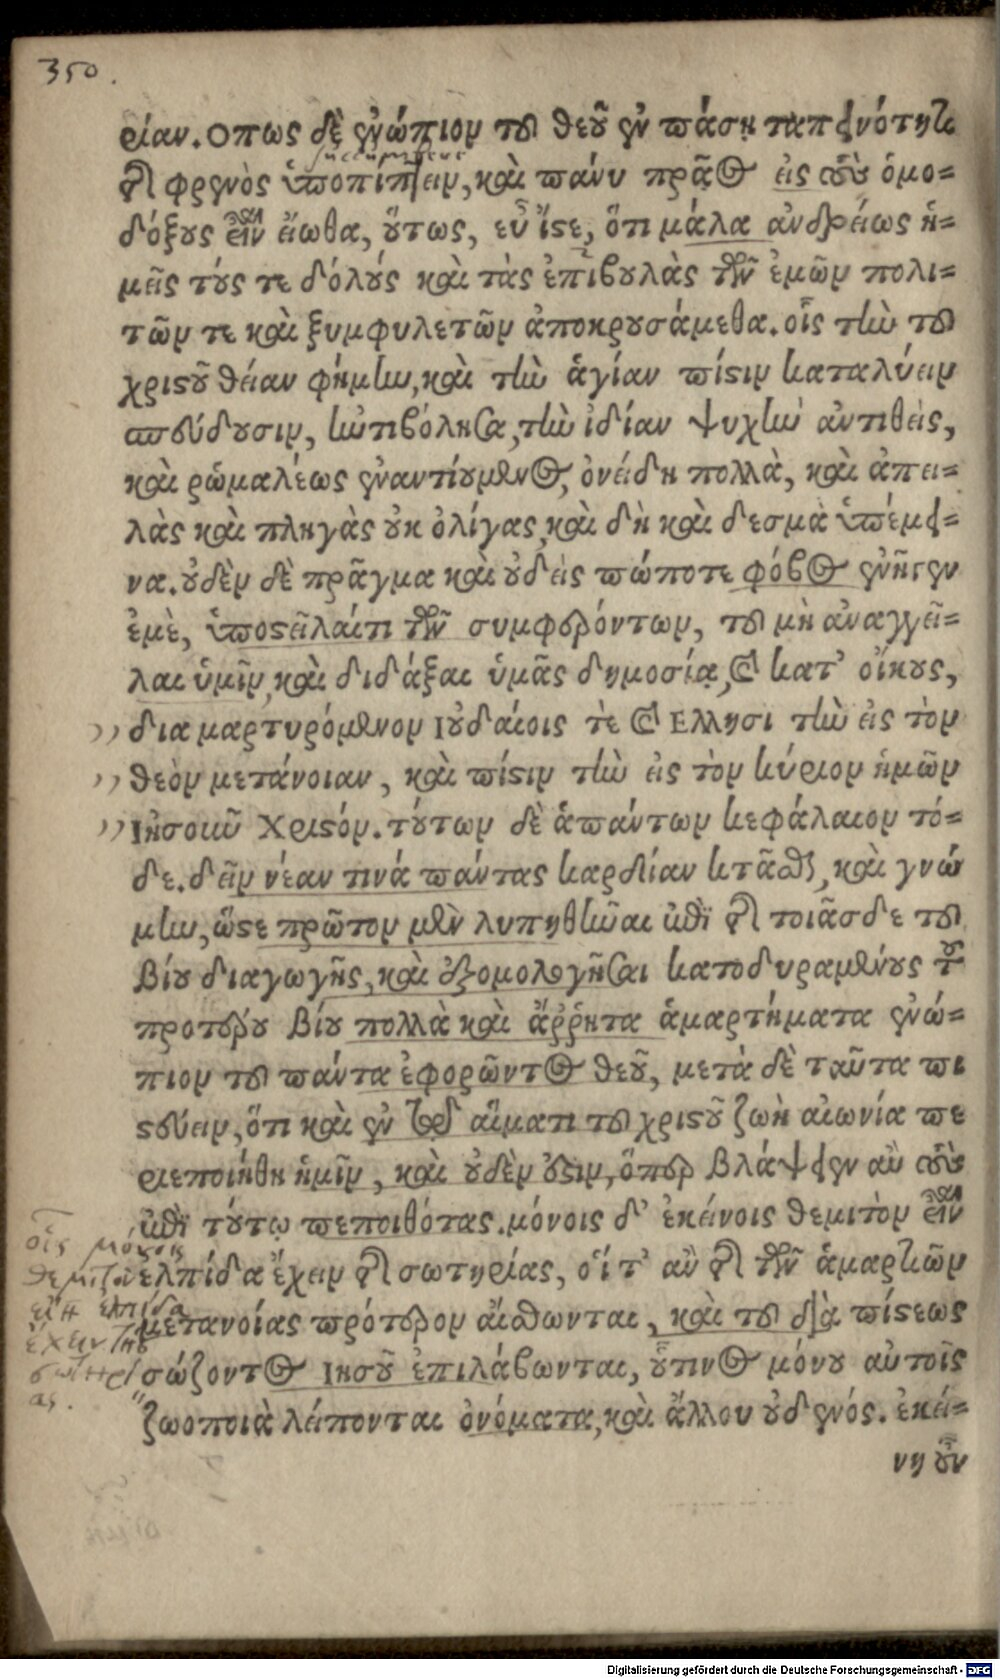 350.
ρίαν. Οπως δὲ ἐνώπιον τοῦ θεοῦ ἐν πάσῃ ταπεινότητι
τῆς φρενὸς ὑποπίπτειν, καὶ πάνυ πρᾷος εἰς τοὺς ὁμο-
δόξους εἶναι εἴωθα, οὕτως, εὖ ἴστε, ὅτι μάλα ἀνδρείως ἡ-
μεῖς τούς τε δόλους καὶ τὰς ἐπιβουλὰς τῶν ἐμῶν πολι-
τῶν τε καὶ ξυμφυλετῶν ἀποκρουσάμεθα. οἷς τὴν τοῦ
χριστοῦ θείαν φήμην, καὶ τὴν ἁγίαν πίστιν καταλύειν
σπεύδουσιν, ἠντιβόλησα, τὴν ἰδίαν ψυχὴν ἀντιθεὶς,
καὶ ῥωμαλέως ἐναντιούμενος, ὀνείδη πολλὰ, καὶ ἀπει-
λὰς καὶ πληγὰς οὐκ ὀλίγας, καὶ δὴ καὶ δεσμὰ ὑπέμει-
να. οὐδὲν δὲ πρᾶγμα καὶ οὐδεὶς πώποτε φόβος ἐνῆγεν
ἐμὲ, ὑποστεῖλαί τι τῶν συμφερόντων, τοῦ μὴ ἀναγγεῖ-
λαι ὑμῖν, καὶ διδάξαι ὑμᾶς δημοσίᾳ, καὶ κατ' οἴκους,
,, διαμαρτυρόμενον Ιουδαίοις τὲ καὶ Ελλησι τὴν εἰς τὸν
,, θεὸν μετάνοιαν, καὶ πίστιν τὴν εἰς τὸν κύριον ἡμῶν
,, Ιησοῦν Χριστόν. τούτων δὲ ἁπάντων κεφάλαιον τό-
δε. δεῖν νέαν τινά πάντας καρδίαν κτᾶσθαι, καὶ γνώ
μην, ὥστε πρῶτον μὲν λυπηθῆναι ἐπὶ τῆς τοιᾶσδε τοῦ
βίου διαγωγῆς, καὶ ἐξομολογῆσαι κατοδυραμένους τοῦ
προτέρου βίου πολλὰ καὶ ἄῤῥητα ἁμαρτήματα ἐνώ-
πιον τοῦ πάντα ἐφορῶντος θεοῦ, μετὰ δὲ ταῦτα πι
στεύειν, ὅτι καὶ ἐν τῷ αἵματι τοῦ χριστοῦ ζωὴ αἰωνία πε
ριεποιήθη ἡμῖν, καὶ οὐδὲν οὖστιν, ὅπερ βλάψειεν αὖ τοὺς
ἐπὶ τούτῳ πεποιθότας. μόνοις δ' ἐκείνοις θεμιτὸν εἶναι
οἷς μόνοις
θεμιτὸν
ἐλπίδα
ἔχειν τῆς
σωτηρί
ας.
ἐλπίδα ἔχειν τῆς σωτηρίας, οἵ τ' αὖ τῆς τῶν ἁμαρτιῶν
μετανοίας πρότερον αἴσθωνται, καὶ τοῦ διὰ πίστεως
σώζοντος Ιησοῦ ἐπιλάβωνται, οὗτινος μόνου αὐτοῖς
ζωοποιὰ λείπονται ὀνόματα, καὶ ἄλλου οὐδενός. ἐκεί-
νη οὖν
Digitalisierung gefördert durch die Deutsche Forschungsgemeinschaft - DFG